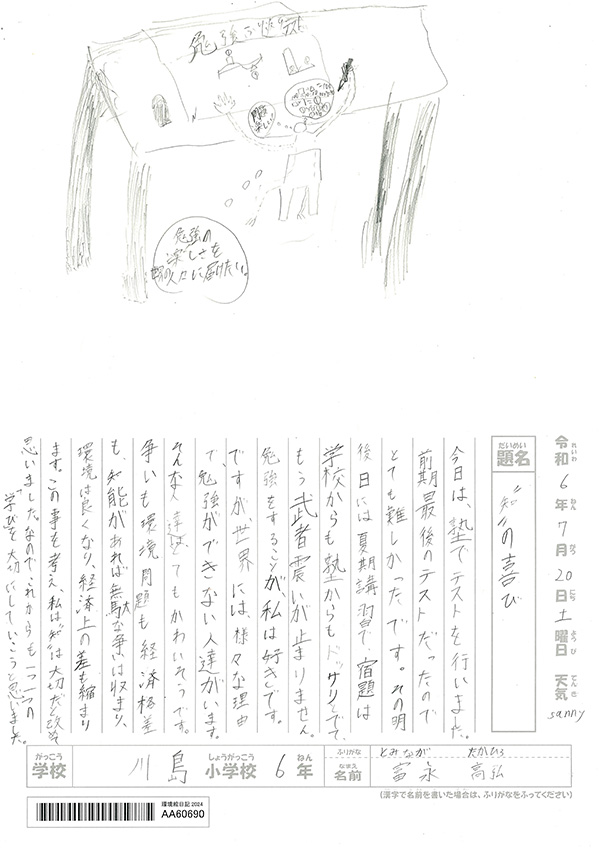 勉強
勉強の
楽しさを
世界の人たちに届けたい。
令和6年7月20日土曜日 天気 sanny
れいわ ねん がつ にち ど ようび てんき
だいめい
題名
“知”の喜び
今日は、塾でテストを行いました。
前期最後のテストだったので
とても難しかったです。その明
後日には夏期講習で、宿題は
学校からも塾からもドッサリとでて
もう武者震いが止まりません。
勉強をすることが、私は好きです。
ですが世界には、様々な理由
で、勉強ができない人達がいます。
そんな人達はとてもかわいそうです。
争いも環境問題も経済格差
も、知能があれば無駄な争いは収まり、
環境は良くなり、経済上の差も縮まり
ます。この事を考え、私は“知”は大切だと改めて
思いました。なので、これからも一つ一つの
“学び”を大切にしていこうと思いました。
がっこう
学校
川島
しょうがっこう
小学校
6
ねん
年
ふりがな
とみなが たかひろ
なまえ
名前
富永 高弘
(漢字で名前を書いた場合は、ふりがなをふってください)
環境絵日記2024
AA60690